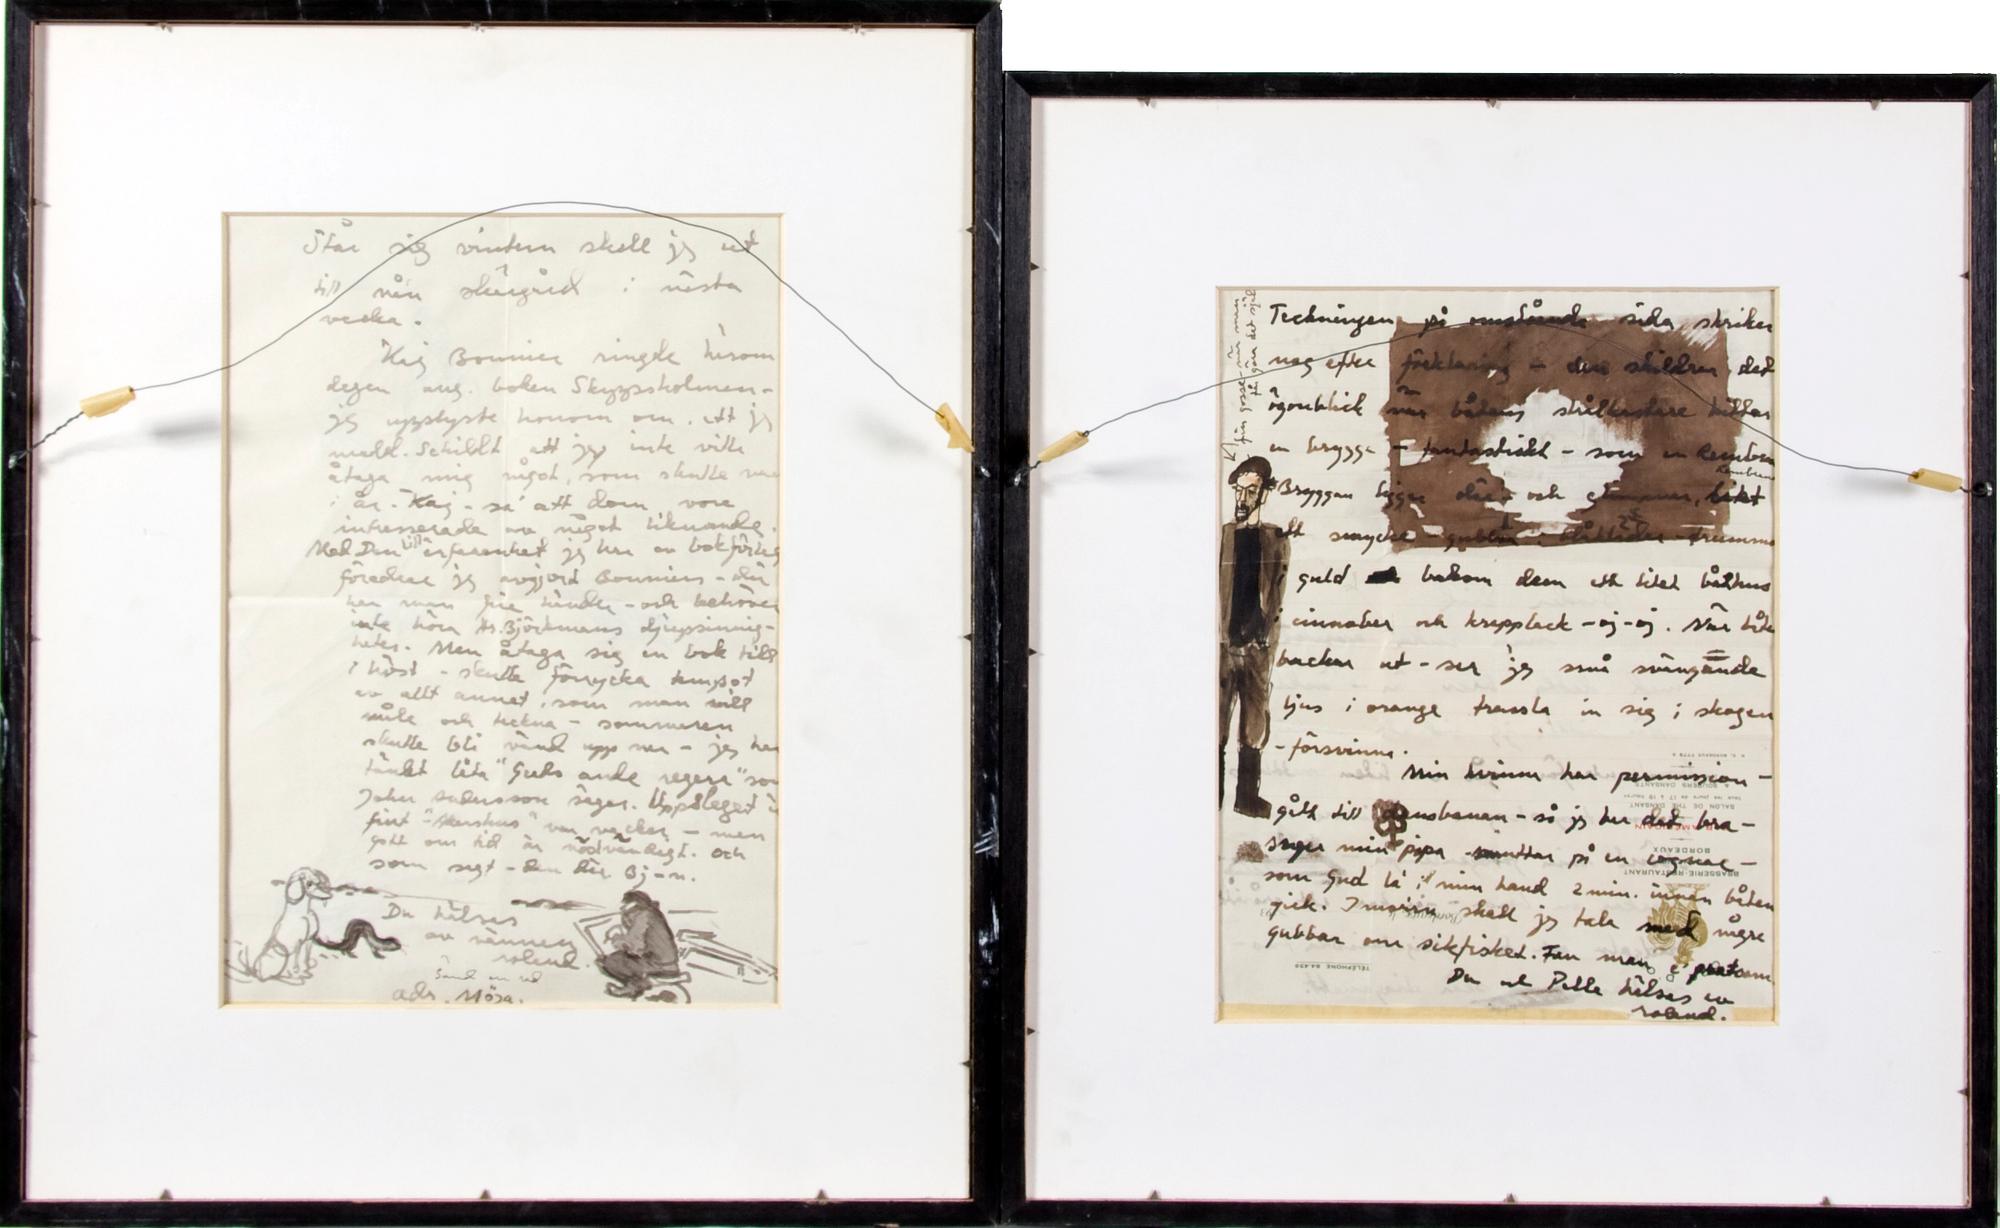 Står sig vintern skall jag ut
till nån skärgård i nästa
vecka.
Kaj Bonnier ringde härom
dagen ang. boken Skeppsholmen -
jag upplyste honom om, att jag
medd. Schildt att jag inte ville
åtaga mig något, som skulle
i år. - Kaj - sa' att dom vore
intresserade av något liknande.
Med Den lilla erfarenhet jag har av bokförlag
föredrar jag avgjort Bonniers - där
har man fria händer - och behöver
inte höra Hr. Björkmans djupsinnig-
heter. Men åtaga sig en bok till
i höst - skulle förrycka tempot
av allt annat, som man vill
måla och teckna - sommaren
skulle bli vänd upp ner - jag har
tänkt låta "Guds ande regera" som
John Andersson säger. Uppslaget är
fint - " " var vacker - men
gott om tid är nödvändigt. och
som sagt - den där Bj-n.
Du hälsas
av vännen
roland.
Sänd en rad
adr. Mösa.
fin gosse - när man
får göra det själv
Teckningen på omstående sida skriker
nog efter förklaring - den skildrar det
ögonblick när båtens strålkastare hittar
en brygga - fantastiskt - som en Rembran
Rembran
Bryggan ligger där - och glimmar, likt
ett smycke - gubbar i - trumma
i guld och bakom dem ett litet båthus
i cinnober och krapplack - oj-oj. När båten
backar ut - ser jag små svängande
ljus i orange trassla in sig i skogen
- försvinna.
Min kvinna har permission -
gått till dansbanan - så jag har det bra -
suger min pipa - smuttar på en cognac -
som Gud la' i min hand 2 min. innan båten
gick. I morrn skall jag tala med några
gubbar om sikfisket. Fan man é pratsam
Du och Pelle hälsas av
roland.
R. C. BORDEAUX 7778 A
& SOUPERS DANSANTS
SALON DE THÉ DANSANT
BAR AMÉRICAIN
BORDEAUX
BRASSERIE-RESTAURANT
TÉLÉPHONE 84.439